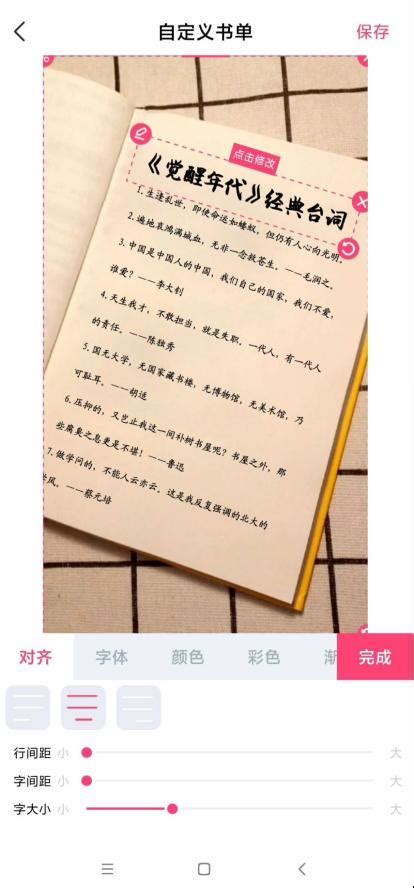 自定义书单
保存
点击修改
《觉醒年代》经典台词
1. 生逢乱世，即使命运如蝼蚁，但仍有人心向光明。
2. 遍地哀鸿满城血，无非一念救苍生。——毛润之。
3. 中国是中国人的中国，我们自己的国家，我们不爱，
谁爱？——李大钊
4. 天生我才，不敢担当，就是失职。一代人，有一代人
的责任。——陈独秀
5. 国无大学，无国家藏书楼，无博物馆，无美术馆，乃
可耻耳。——胡适
6. 压抑的，又岂止我这一间补树书屋呢？书屋之外，那
些腐臭之息更是不堪！——鲁迅
7. 做学问的，不能人云亦云。这是我反复强调的北大的
学风。——蔡元培
对齐 字体 颜色 彩色 渐 完成
行间距 小 大
字间距 小 大
字大小 小 大